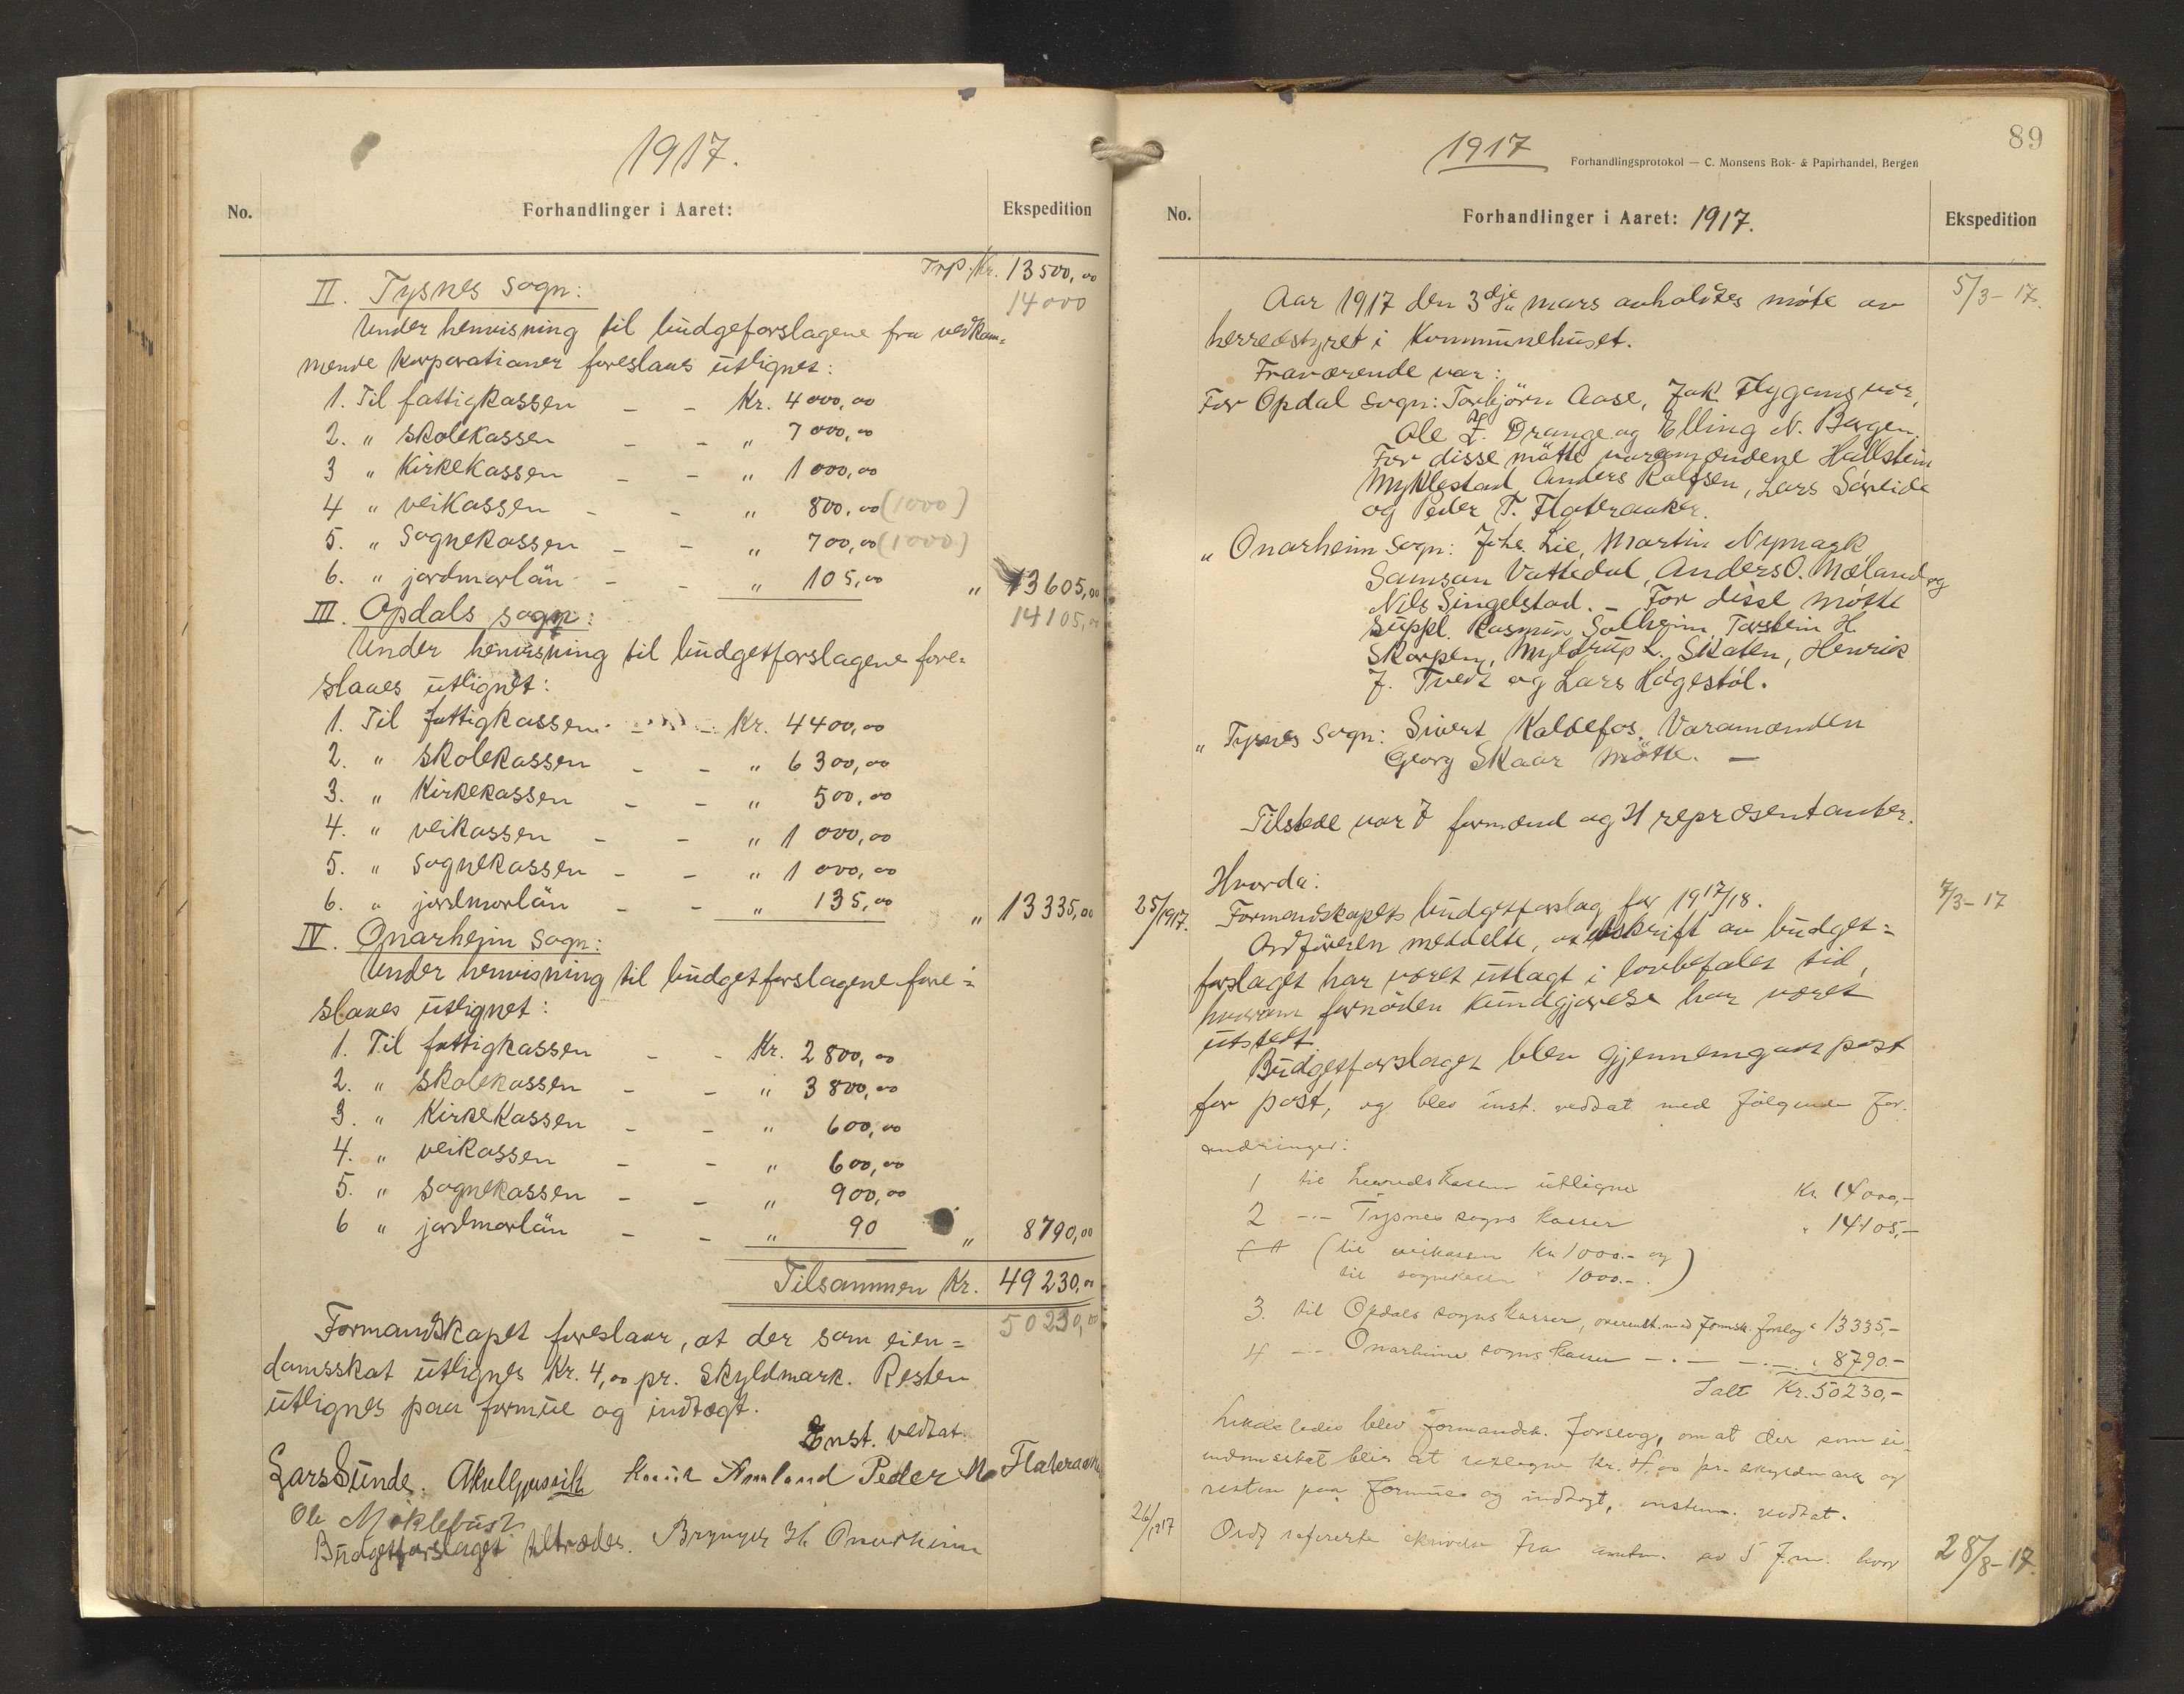 1917.
No. Forhandlinger i Aaret: Ekspedition
Trp. Kr. 13500,00
14000
II. Tysnes Sogn:
Under henvisning til budgetforslagene fra vedkom=
mende korporationer foreslaaes utlignet:
1. Til fattigkassen - - Kr. 4000,00
2. " skolekassen - - " 7000,00
3 " Kirkekassen - - " 1000,00
4 " veikassen - - " 800,00 (1000)
5. " Sognekassen - - " 700,00 (1000)
6. " jordmorlön - - " 105,00 " 13605,00
14105,00
III. Opdals sogn:
Under henvisning til budgetforslagene fore=
slaaes utlignet:
1. Til fattigkassen - - Kr. 4400,00
2. " skolekassen - - " 6300,00
3. " Kirkekassen - - " 500,00
4. " veikassen - - " 1000,00
5. " sognekassen - - " 1000,00
6. " jordmorlön - - " 135,00 " 13335,00
IV. Onarheim Sogn:
Under henvisning til budgetforslagene fore=
slaaes utlignet:
1. Til fattigkassen - - Kr. 2800,00
2. " skolekassen - - " 3800,00
3. " Kirkekassen - - " 600,00
4. " veikassen - - " 600,00
5. " sognekassen - - " 900,00
6 " jordmorlön - - " 90 " 8790,00
Tilsammen Kr. 49230,00
50230,00
Formandskapet foreslaar, at der som eien=
damsskat utlignes Kr. 4,00 pr. Skyldmark. Resten
utlignes paa formue og indtægt.
Enst. vedtat.
Lars Sunde. Amland Peder M. Flateraaker
Ole Møklebust
Budgetforslaget tiltrædes. Brynjulf H. Onarheim
1917
89
Forhandlingsprotokol — C. Monsens Bok- & Papirhandel, Bergen
No. Forhandlinger i Aaret: 1917. Ekspedition
Aar 1917 den 3dje mars avholdtes møte av 5/3-17.
herredstyret i Kommunehuset.
Fraværende var:
For Opdal Sogn: Torbjörn Aase, Jak. Flygansvær,
Ole L. Drange og Elling N. Bergen.
For disse møtte varamændene Hallstein
Myklestad, Anders Rolfsen, Lars Søreide
og Peder T. Flateraaker.
" Onarheim Sogn: Johs. Lie, Martin Nymark
Samson Vattedal, Anders O. Mæland og
Nils Singelstad. - For disse møtte
Suppl. Rasmus Solheim, Torstein H.
Skorpen, Myldrup L. Skaten, Henrik
J. Tveit og Lars Høgestøl.
" Tysnes Sogn: Sivert Kaldefos. Varamanden
Georg Skaar møtte. —
Tilstede var 7 formænd og 21 repræsentanter.
Hvorda:
25/1917. Formandskapets budgetforslag for 1917/18. 7/3-17
Ordføreren meddelte, at utskrift av budget=
forslaget har været utlagt i lovbefalet tid,
hvorom fornøden kundgjørelse har været
utstedt.
Budgetforslaget blev gjennemgaat post
for post, og blev enst. vedtat med følgende for-
andringer:
1 til herredskassen utlignes Kr. 14000,-
2 -"- Tysnes sogns kasser " 14105,-
(til veikassen Kr 1000.- og
til sognekassen " 1000.-)
3. til Opdals sogns kasser, overenst. med formsk. forslag " 13335,-
4 -"- Onarheims sogns kasser -"- -"- " 8790.-
Ialt Kr. 50230,-
Likeledes blev formandsk. forslag, om at der som ei-
endomsskat blir at utlignes kr. 4,00 pr. skyldmark og
resten paa formue og indtægt, enstem. vedtat.
26/1917 Ordf refererte skrivelse fra amtm. av 5 f.m. hvor 28/8-17.